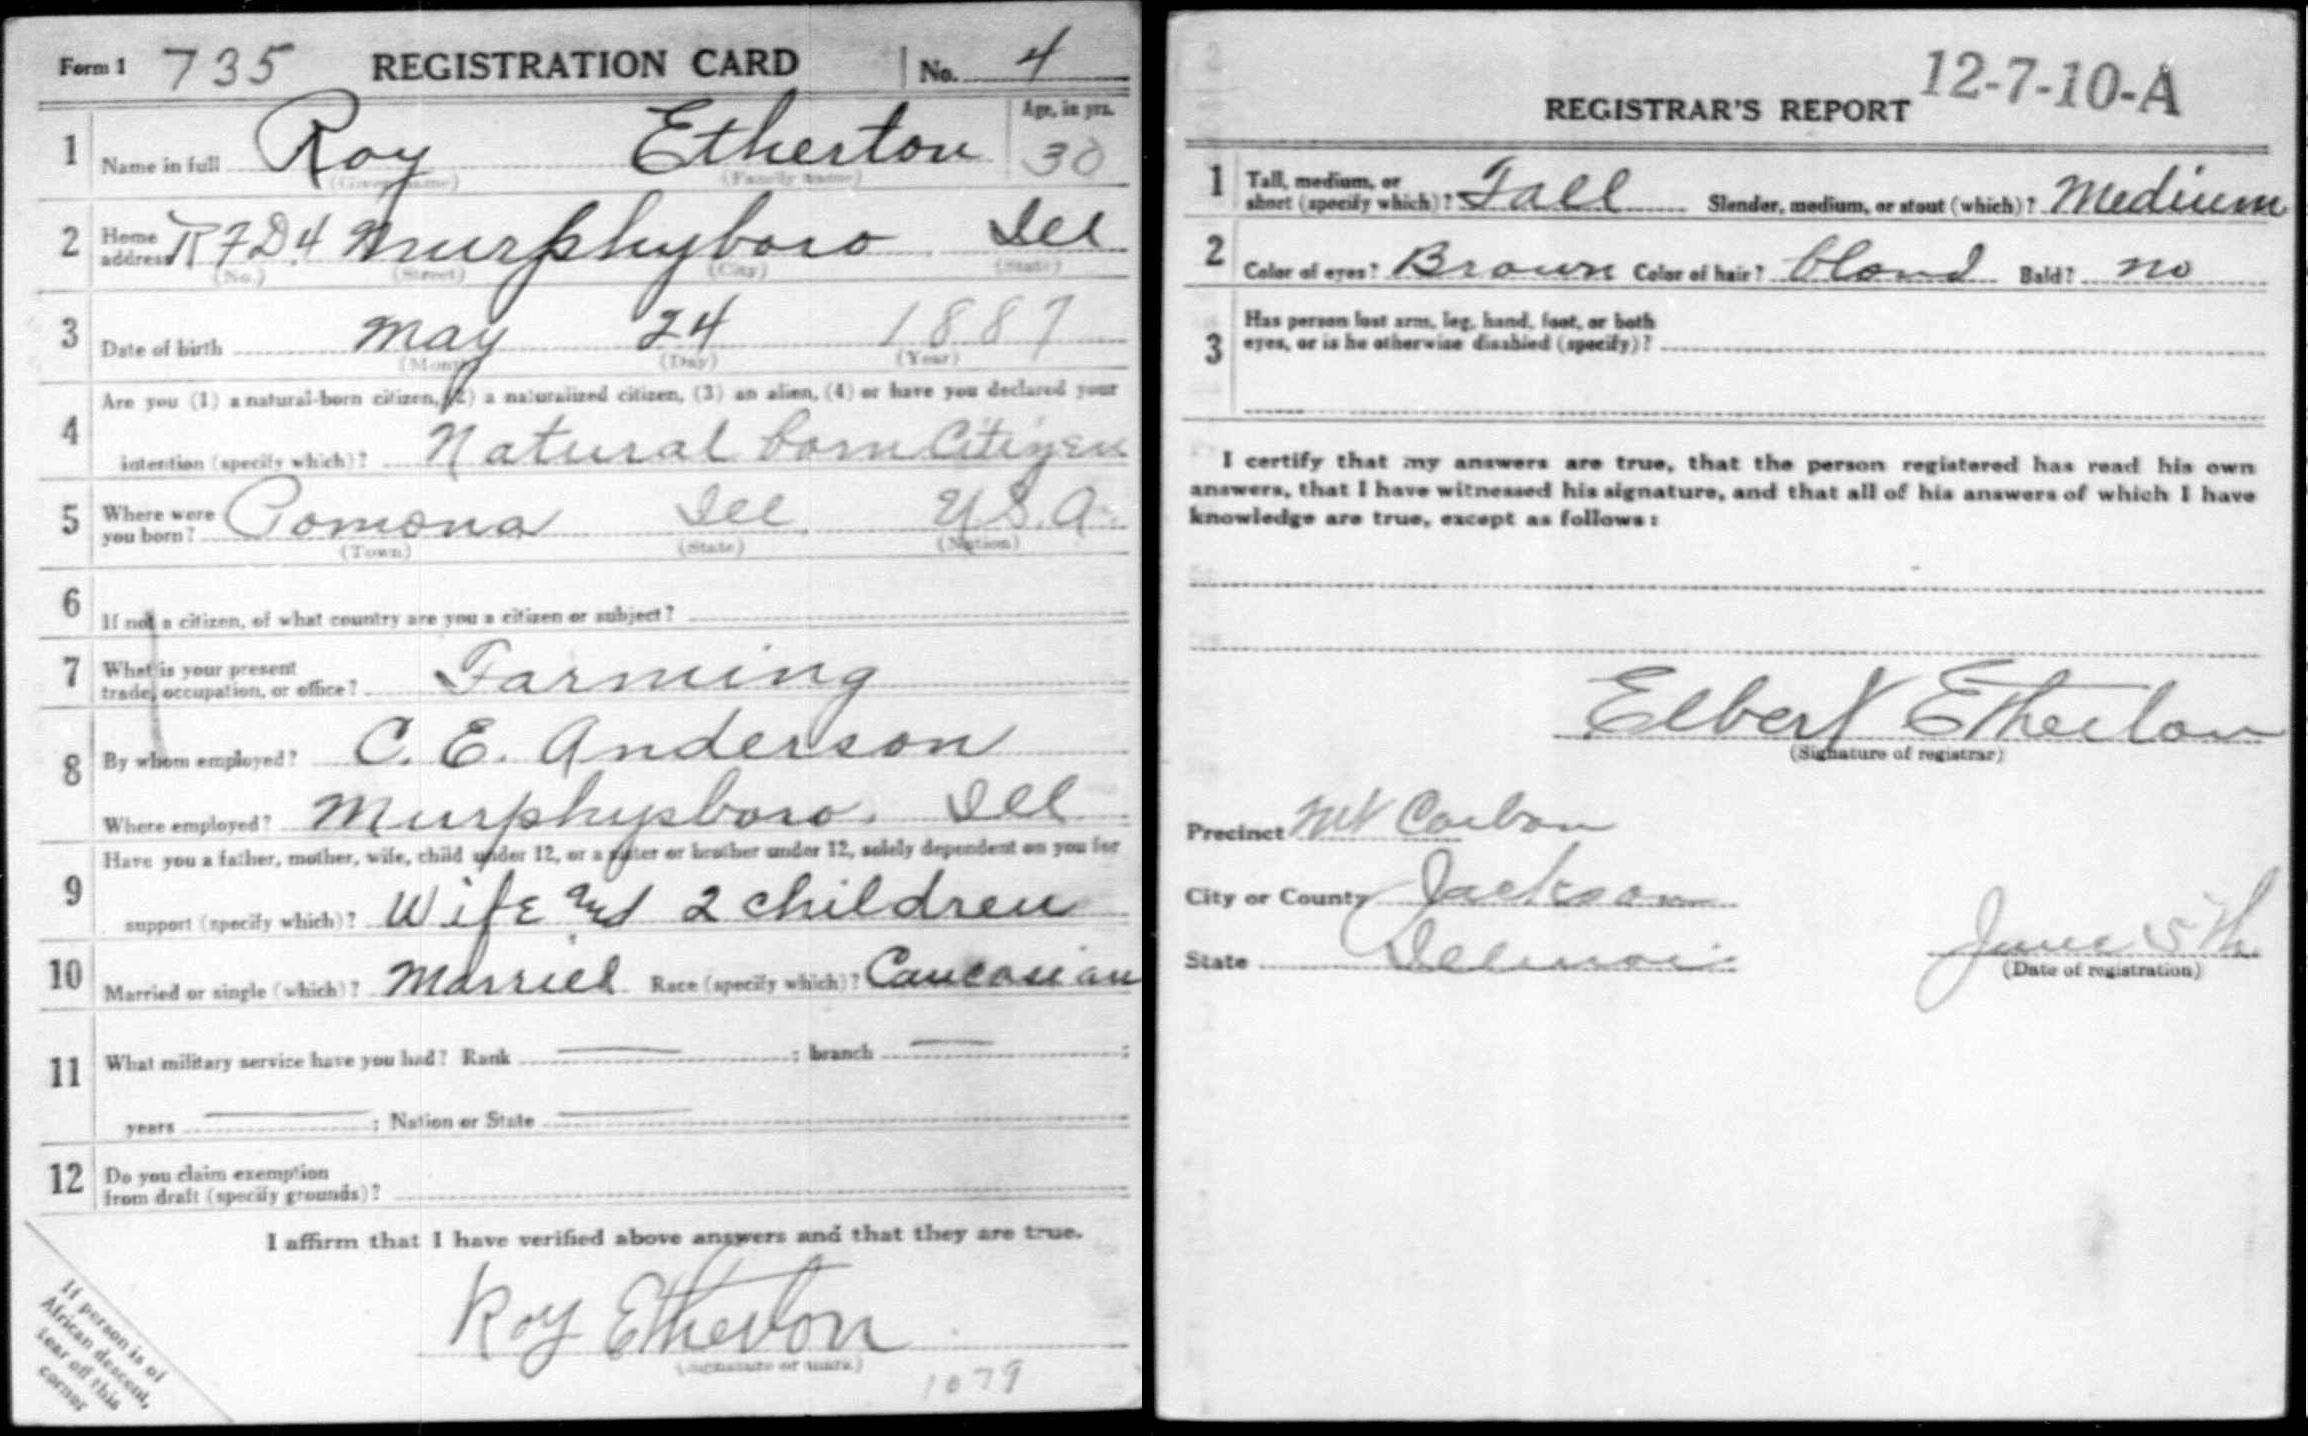 Form 1 735 REGISTRATION CARD No. 4
Age, in yrs.
1 Name in full Roy Etherton 30
(Given name) (Family name)
2 Home address R F D. 4 Murphyboro Ill
(No.) (Street) (City) (State)
3 Date of birth May 24 1887
(Month) (Day) (Year)
4 Are you (1) a natural-born citizen, (2) a naturalized citizen, (3) an alien, (4) or have you declared your
intention (specify which)? Natural born Citizen
5 Where were you born? Pomona Ill U.S.A.
(Town) (State) (Nation)
6 If not a citizen, of what country are you a citizen or subject?
7 What is your present
trade, occupation, or office? Farming
8 By whom employed? C. E. Anderson
Where employed? Murphysboro. Ill
9 Have you a father, mother, wife, child under 12, or a sister or brother under 12, solely dependent on you for
support (specify which)? Wife and 2 children
10 Married or single (which)? Married Race (specify which)? Caucasian
11 What military service have you had? Rank — ; branch — ;
years — ; Nation or State —
12 Do you claim exemption
from draft (specify grounds)?
I affirm that I have verified above answers and that they are true.
Roy Etherton
(Signature or mark)
1079
If person is of
African descent,
tear off this
corner
12-7-10-A
REGISTRAR'S REPORT
1 Tall, medium, or
short (specify which)? Tall Slender, medium, or stout (which)? Medium
2 Color of eyes? Brown Color of hair? blond Bald? no
3 Has person lost arm, leg, hand, foot, or both
eyes, or is he otherwise disabled (specify)?
I certify that my answers are true, that the person registered has read his own
answers, that I have witnessed his signature, and that all of his answers of which I have
knowledge are true, except as follows:
Elbert Etherton
(Signature of registrar)
Precinct Mt Carbon
City or County Jackson
State Illinois June 5th
(Date of registration)